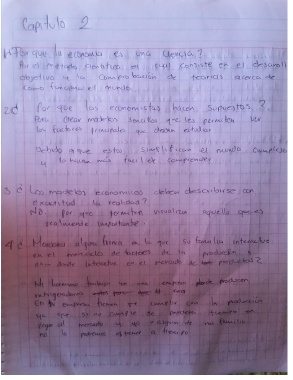 Capitulo 2
1¿Por que la economia es una ciencia?
Por el metodo cientifico, el cual consiste en el desarrollo
objetivo y la comprobación de teorias acerca de
como funciona el mundo
2¿ Por que los economistas hacen supuestos?
Para crear modelos sencillos que les permiten ver
los factores principales que desean estudiar
Debido a que estos simplifican el mundo complejo
y lo hacen más facil de comprender
3¿ Los modelos economicos deben describirse con
exactitud la realidad?
No, por que permiten visualizar aquello que es
realmente importante
4¿ Menciona alguna forma en la que su familia interactua
en el mercado de factores de la producción y
otra donde interactua en el mercado de productos?
Mi hermano trabaja en una empresa
refrigeradores
En la empresa tienen que cumplir con la producción
ya que si no cumple
al mercado
no lo podemos obtener a tiempo